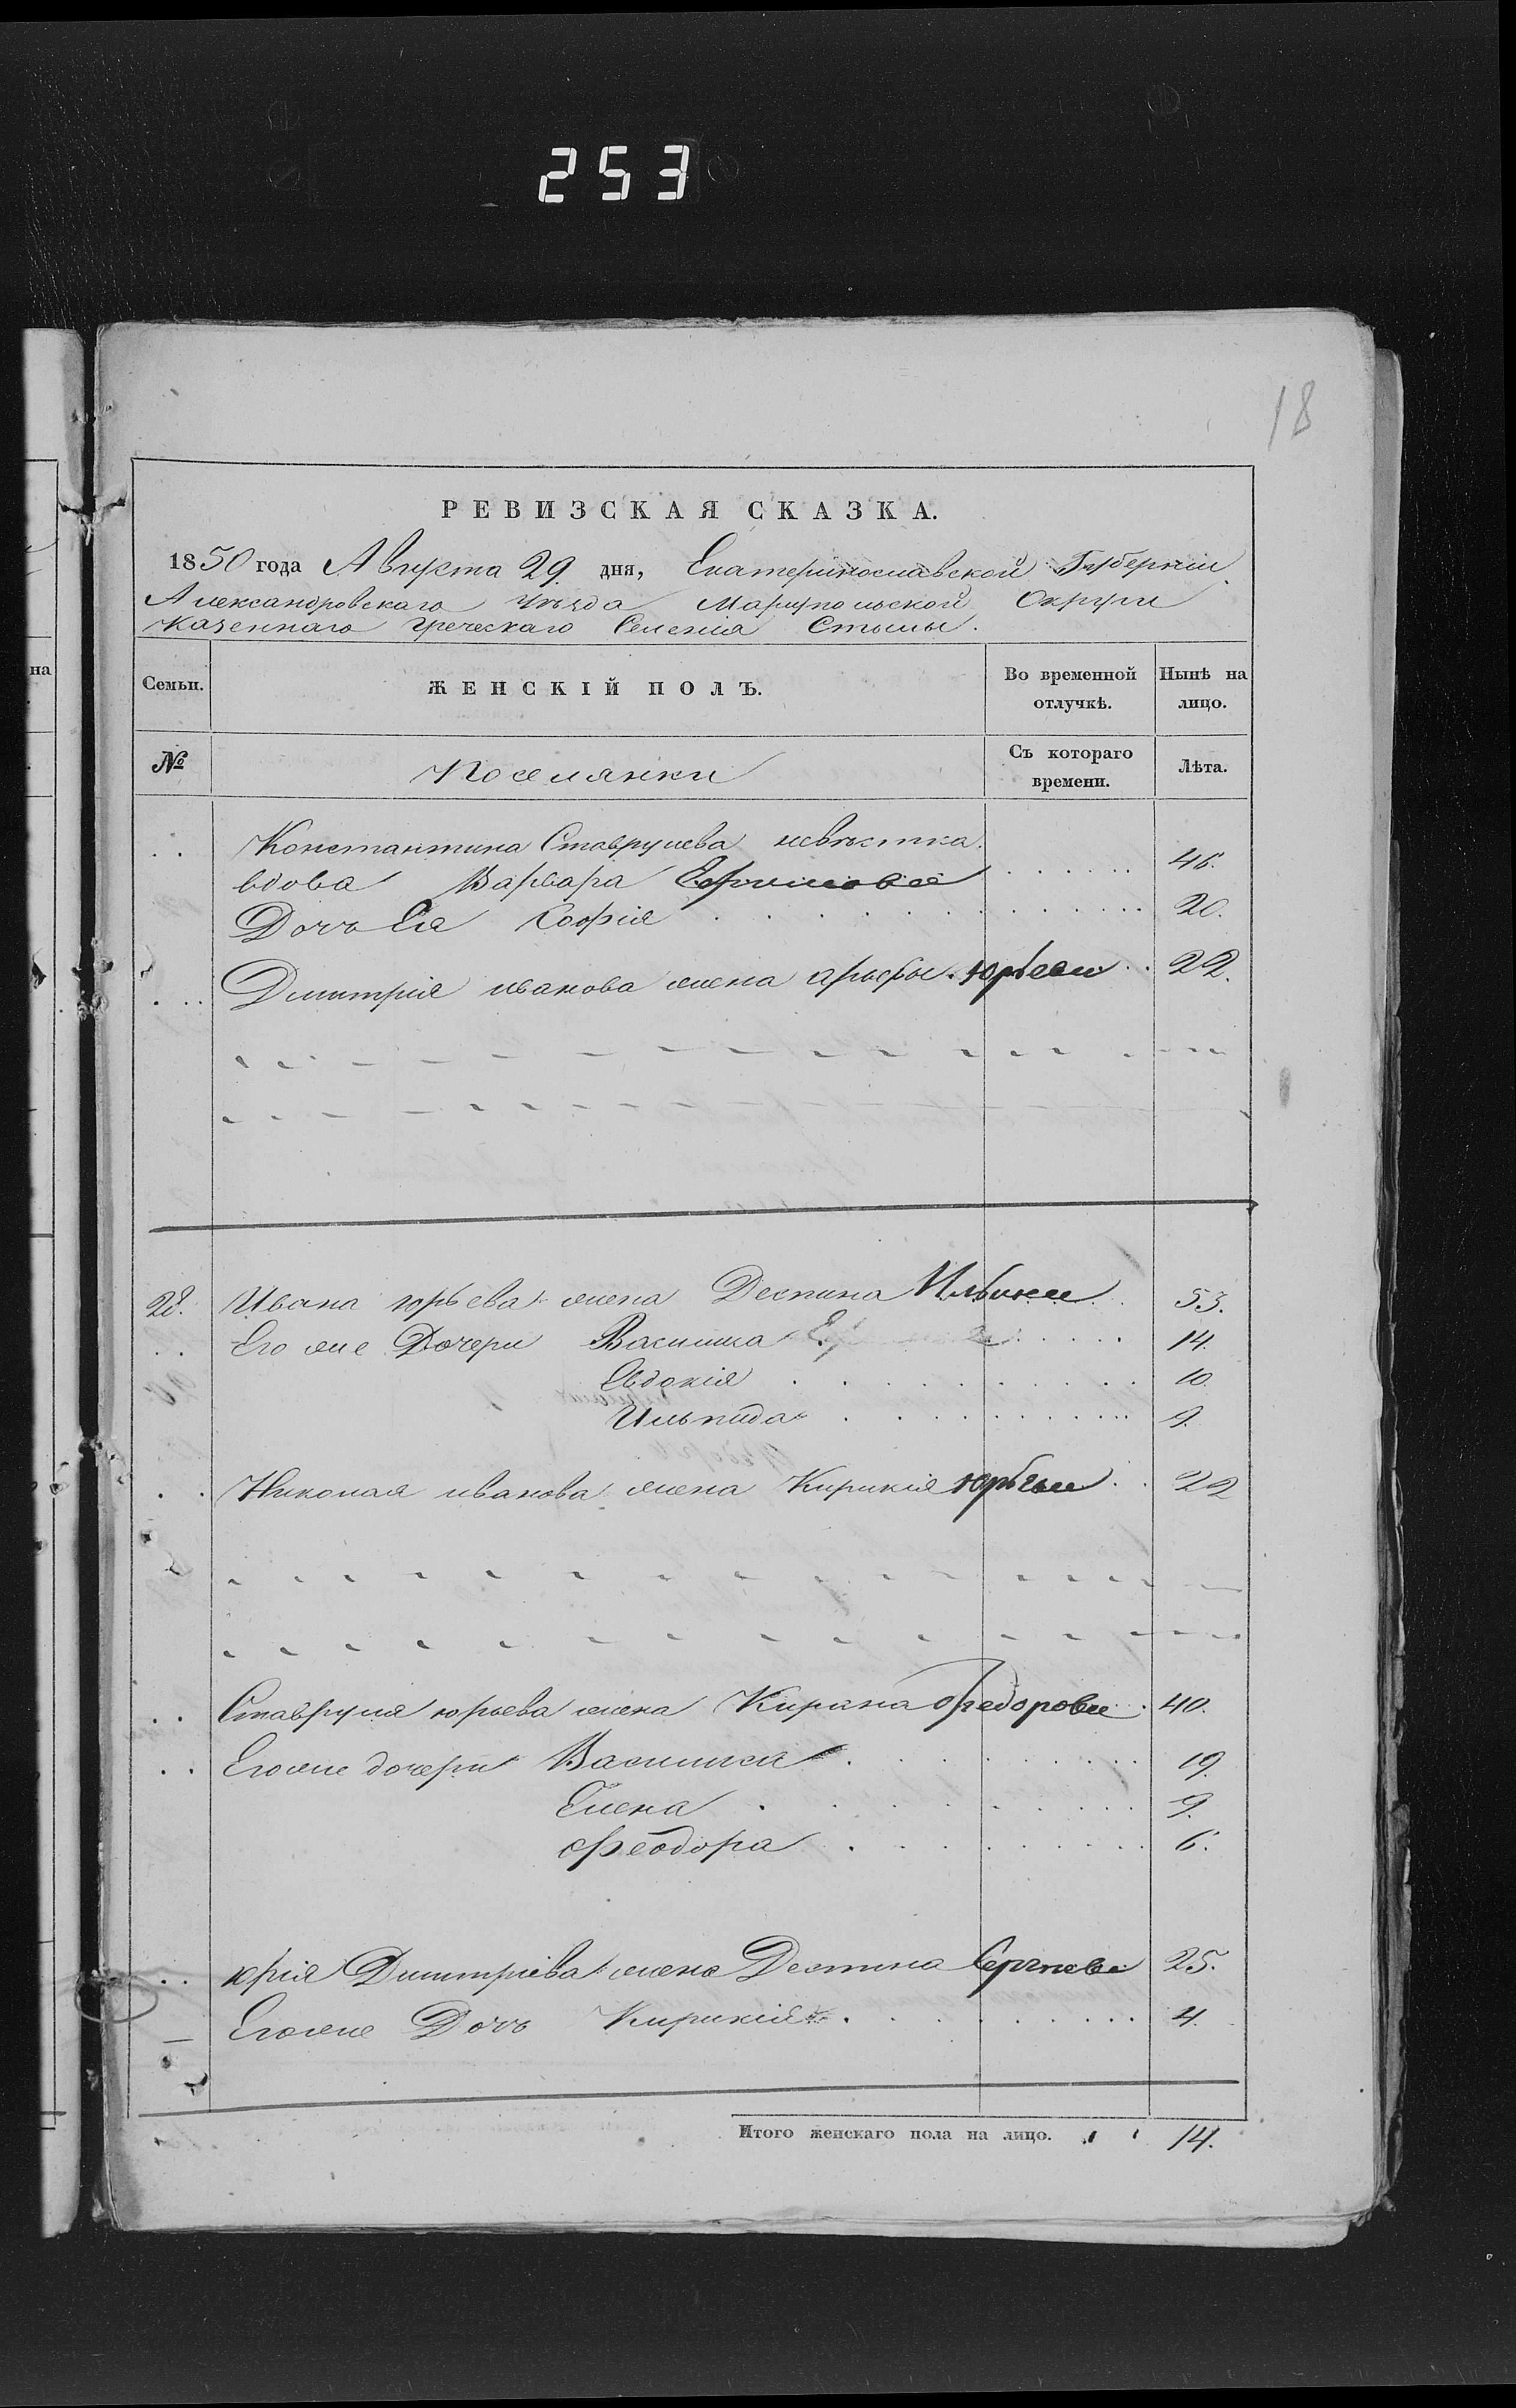 253
18
РЕВИЗСКАЯ СКАЗКА.
1850 года Августа 29. дня, Екатеринославской Губерніи
Александровскаго уѣзда Маріупольской Округи
казеннаго греческаго Селенія Стылы.
на
Семьи. ЖЕНСКІЙ ПОЛЪ. Во временной отлучкѣ. Нынѣ на лицо.
№ Поселянки Съ котораго времени. Лѣта.
Константина Ставрулева невѣстка
вдова Варвара 46.
Дочь Ея Софія 20.
Дмитрія иванова жена Юрьева 22.
28. Ивана юрьева жена Деспина 53.
Его же Дочери Василика 14.
Евдокія 10
Ильпида 9.
Николая иванова жена Кирикія 22
Ставруля юрьева жена Кирана Федорова 40.
Егоже дочери Василика 19.
Елена 9.
Феодора 6.
юрія Дмитріева жена Деспина 25.
Егоже Дочь Кирикія 4.
Итого женскаго пола на лицо. 14.